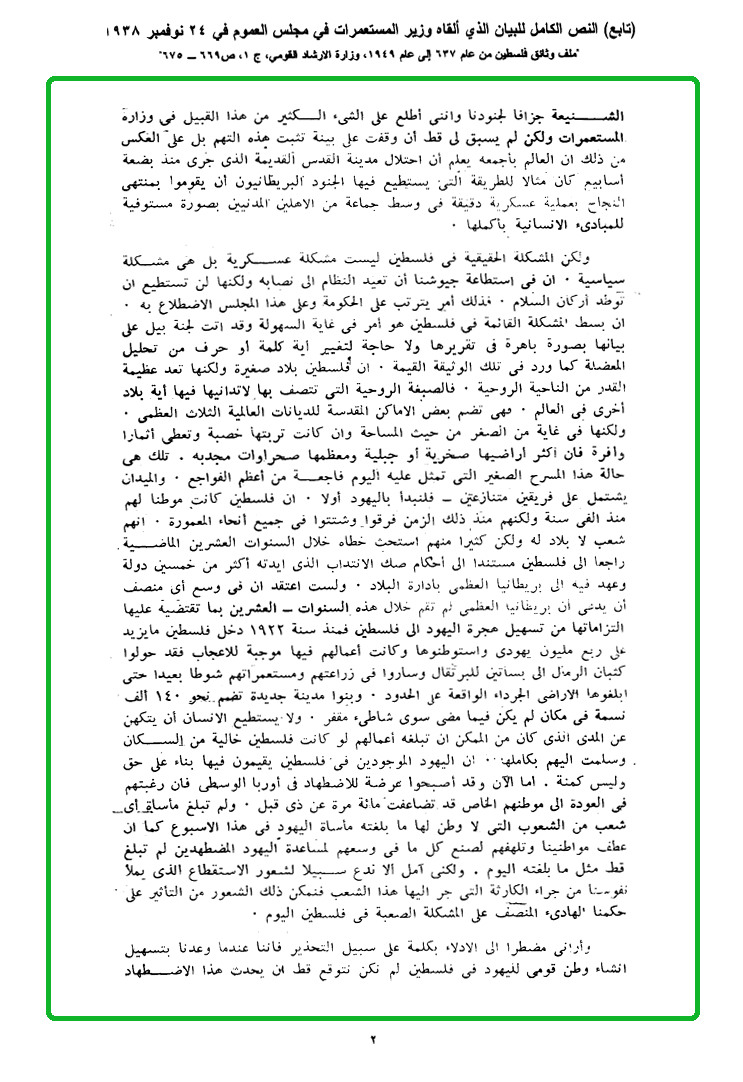 (تابع) النص الكامل للبيان الذي ألقاه وزير المستعمرات في مجلس العموم في ٢٤ نوفمبر ١٩٣٨
"ملف وثائق فلسطين من عام ٦٣٧ إلى عام ١٩٤٩، وزارة الارشاد القومي، ج ١، ص ٦٦٩ – ٦٧٥"
الشـــنيعة جزافا لجنودنا واننى أطلع على الشىء الـــكثير من هذا القبيل فى وزارة
المستعمرات ولكن لم يسبق لى قط أن وقفت على بينة تثبت هذه التهم بل على العكس
من ذلك ان العالم بأجمعه يعلم أن احتلال مدينة القدس القديمة الذى جرى منذ بضعة
أسابيع كان مثالا للطريقة التى يستطيع فيها الجنود البريطانيون أن يقوموا بمنتهى
النجاح بعملية عسكرية دقيقة فى وسط جماعة من الاهلين المدنيين بصورة مستوفية
للمبادىء الانسانية بأكملها ٠
ولكن المشكلة الحقيقية فى فلسطين ليست مشكلة عسـكرية بل هى مشـكلة
سياسية ٠ ان فى استطاعة جيوشنا أن تعيد النظام الى نصابه ولكنها لن تستطيع ان
توطد أركان السلام ٠ فذلك أمر يترتب على الحكومة وعلى هذا المجلس الاضطلاع به ٠
ان بسط المشكلة القائمة فى فلسطين هو أمر فى غاية السهولة وقد اتت لجنة بيل على
بيانها بصورة باهرة فى تقريرها ولا حاجة لتغيير أية كلمة أو حرف من تحليل
المعضلة كما ورد فى تلك الوثيقة القيمة ٠ ان فلسطين بلاد صغيرة ولكنها تعد عظيمة
القدر من الناحية الروحية ٠ فالصبغة الروحية التى تتصف بها لاتدانيها فيها أية بلاد
أخرى فى العالم ٠ فهى تضم بعض الاماكن المقدسة للديانات العالمية الثلاث العظمى ٠
ولكنها فى غاية من الصغر من حيث المساحة وان كانت تربتها خصبة وتعطى أثمارا
وافرة فان أكثر أراضيها صخرية أو جبلية ومعظمها صحراوات مجدبه ٠ تلك هى
حالة هذا المسرح الصغير التى تمثل عليه اليوم فاجعـــة من أعظم الفواجع ٠ والميدان
يشتمل على فريقين متنازعين ــ فلنبدأ باليهود أولا ٠ ان فلسطين كانت موطنا لهم
منذ الفى سنة ولكنهم منذ ذلك الزمن فرقوا وشتتوا فى جميع أنحاء المعمورة ٠ انهم
شعب لا بلاد له ولكن كثيرا منهم استحث خطاه خلال السنوات العشرين الماضـــية
راجعا الى فلسطين مستندا الى أحكام صك الانتداب الذى ايدته أكثر من خمسين دولة
وعهد فيه الى بريطانيا العظمى بادارة البلاد ٠ ولست اعتقد ان فى وسع أى منصف
أن يدعى أن بريطانيا العظمى لم تقم خلال هذه السنوات ــ العشرين بما تقتضية عليها
التزاماتها من تسهيل هجرة اليهود الى فلسطين فمنذ سنة ١٩٢٢ دخل فلسطين مايزيد
على ربع مليون يهودى واستوطنوها وكانت أعمالهم فيها موجبة للاعجاب فقد حولوا
كثبان الرمال الى بساتين للبرتقال وساروا فى زراعتهم ومستعمراتهم شوطا بعيدا حتى
ابلغوها الاراضى الجرداء الواقعة على الحدود ٠ وبنوا مدينة جديدة تضم نحو ١٤٠ ألف
نسمة فى مكان لم يكن فيما مضى سوى شاطىء مقفر ٠ ولا يستطيع الانسان أن يتكهن
عن المدى الذى كان من الممكن ان تبلغه أعمالهم لو كانت فلسطين خالية من الســـكان
وسلمت اليهم بكاملها ٠ ان اليهود الموجودين فى فلسطين يقيمون فيها بناء على حق
وليس كمنة ٠ اما الآن وقد أصبحوا عرضة للاضطهاد فى أوربا الوسطى فان رغبتهم
فى العودة الى موطنهم الخاص قد تضاعفت مائة مرة عن ذى قبل ٠ ولم تبلغ مأساة أى
شعب من الشعوب التى لا وطن لها ما بلغته مأساة اليهود فى هذا الاسبوع كما ان
عطف مواطنينا وتلهفهم لصنع كل ما فى وسعهم لمساعدة اليهود المضطهدين لم تبلغ
قط مثل ما بلغته اليوم ٠ ولكنى آمل الا ندع ســبيلا لشعور الاستفظاع الذى يملأ
نفوسنا من جراء الكارثة التى جر اليها هذا الشعب فنمكن ذلك الشعور من التأثير على
حكمنا الهادىء المنصف على المشكلة الصعبة فى فلسطين اليوم ٠
وأرانى مضطرا الى الادلاء بكلمة على سبيل التحذير فاننا عندما وعدنا بتسهيل
انشاء وطن قومى لليهود فى فلسطين لم نكن نتوقع قط ان يحدث هذا الاضـــطهاد
٢